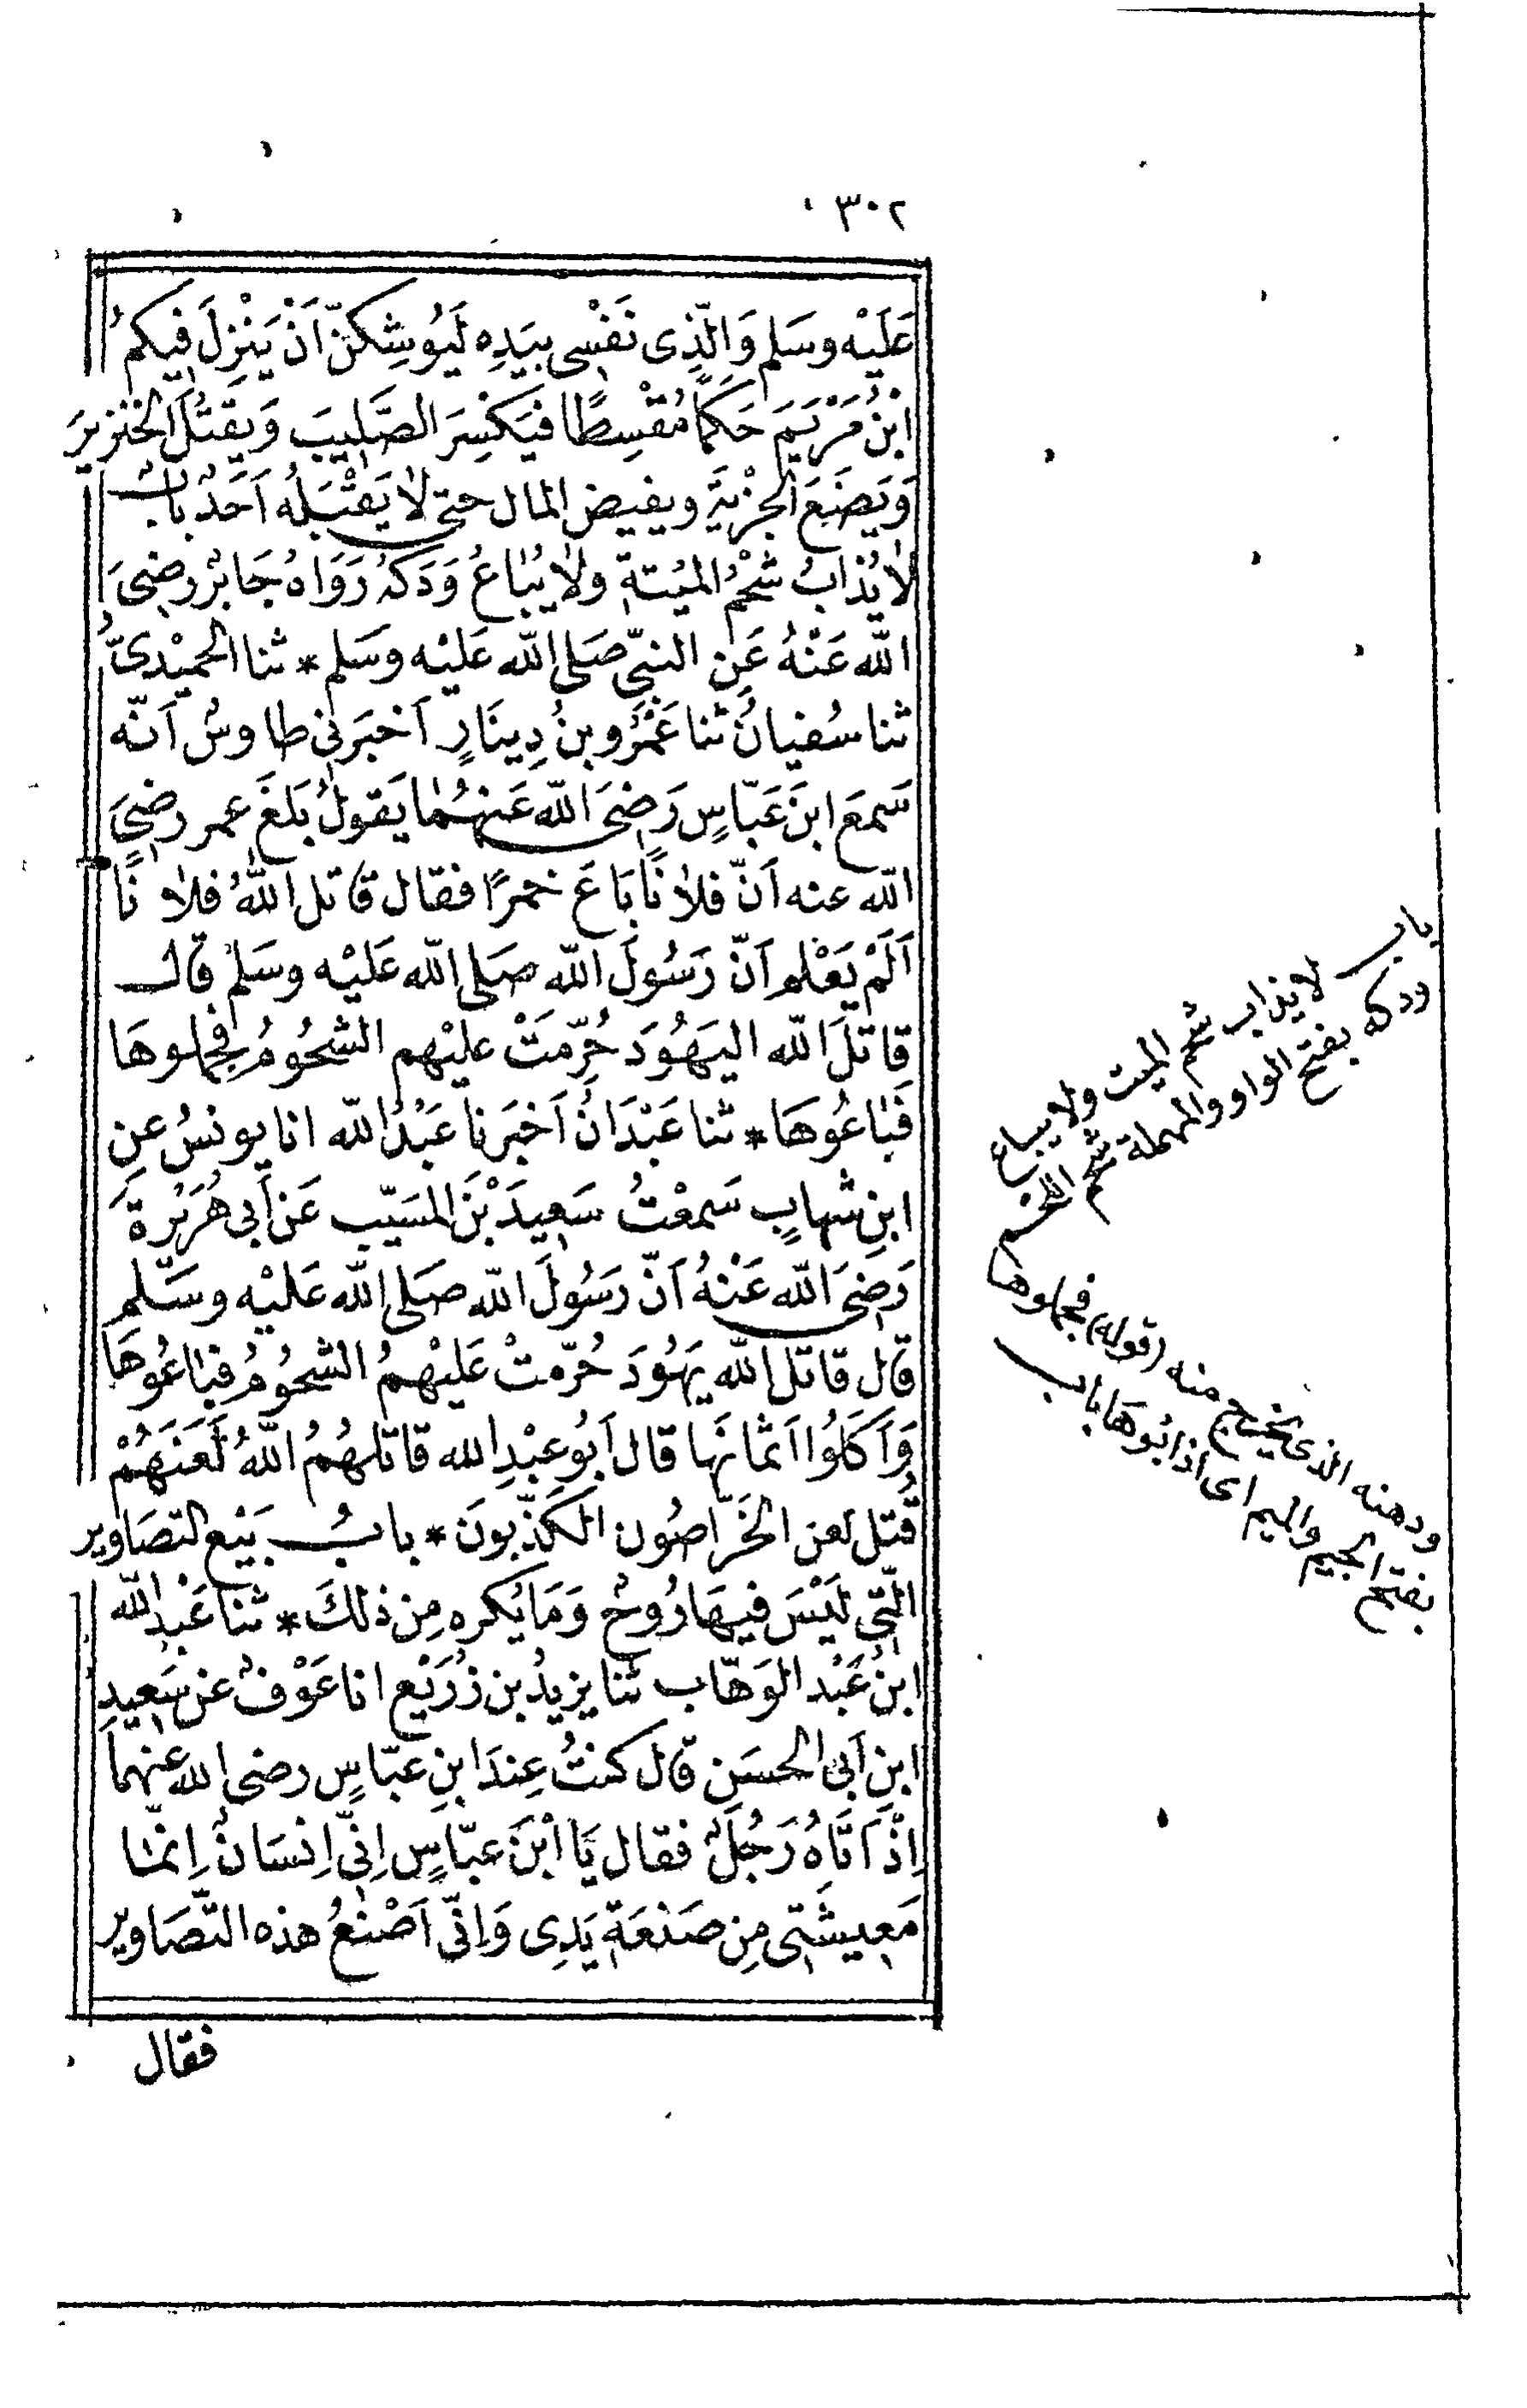 ٣٠٢
عَلَيْه وسَلم وَالّذِى نَفْسِى بِيَدِهِ لَيُوشِكنّ اَنْ يَنْزِلَ فِيكمُ
ابْنُ مَرْيَمَ حَكَمًا مُقْسِطًا فَيَكْسِرَ الصَّلِيبَ وَيَقْتُلَ الخنزيرَ
وَيَضَعَ الجزْيَةَ ويفيض المال حتى لا يَقْبَلَهُ اَحَدٌ بابٌ
لا يُذابُ شحْمُ الميْتةِ ولا يُباعُ وَدَكهُ رَوَاهُ جَابرٌ رضِىَ
الله عَنْهُ عَنِ النبىِّ صَلى الله عَليْه وسَلم * ثنا الحمَيْدِىُّ
ثنا سُفيانُ ثنا عَمْرُو بنُ دِينَارٍ اَخبَرَنِى طاوسٌ اَنّه
سَمعَ ابنَ عَبّاسٍ رَضِىَ الله عَنهُما يَقولُ بَلغَ عمر رضِىَ
الله عنه اَنّ فلانًا بَاعَ خمرًا فقال قاتل اللهُ فلانًا
اَلَمْ يَعْلم اَنّ رَسُولَ الله صَلى الله عَليْه وسَلم قال
قاتلَ الله اليَهُودَ حُرّمَتْ عليْهم الشحُومُ فجملوهَا
فَباعُوهَا * ثنا عَبْدَانُ اَخبَرنا عَبْدُ الله انا يونسُ عنِ
ابنِ شهابٍ سَمعْتُ سَعِيدَ بْنَ المسَيّب عَن اَبى هُرَيْرةَ
رَضِىَ الله عَنْهُ اَنّ رَسُولَ الله صَلى الله عَليْه وسَلّم
قال قاتلَ الله يَهُودَ حُرّمتْ عَليْهمُ الشحُومُ فبَاعُوهَا
وَاَكَلُوا اَثمانَها قال اَبُو عبْدِ الله قاتلهُمُ اللهُ لَعَنَهُمْ
قُتل لعن الخَرّاصُون الكَذّبونَ * بابُ بَيْع التصَاوير
التِى لَيْسَ فيهَا رُوحٌ وَمَا يُكره مِن ذلكَ * ثنا عَبْد الله
ابنُ عَبْد الوَهّاب ثنا يزيدُ بن زُرَيْع انا عَوْفٌ عن سَعِيدِ
ابنِ اَبى الحسَنِ قال كنتُ عِندَ ابنِ عبّاسٍ رضى الله عنهما
اِذْ اَتَاهُ رَجُلٌ فقال يَا ابْنَ عبّاسٍ اِنّى اِنسَانٌ اِنمّا
مَعِيشَتِى مِن صَنعَةِ يَدِى وَاِنّى اَصْنعُ هذه التّصَاوير
فقال
باب لا يذاب شحم الميت ولا يباع
ودكه بفتح الواو والمهملة شحم اللحم
ودهنه الذى يخرج منه (قوله) فجملوها
بفتح الجيم والميم اى اذابُوهَا باب